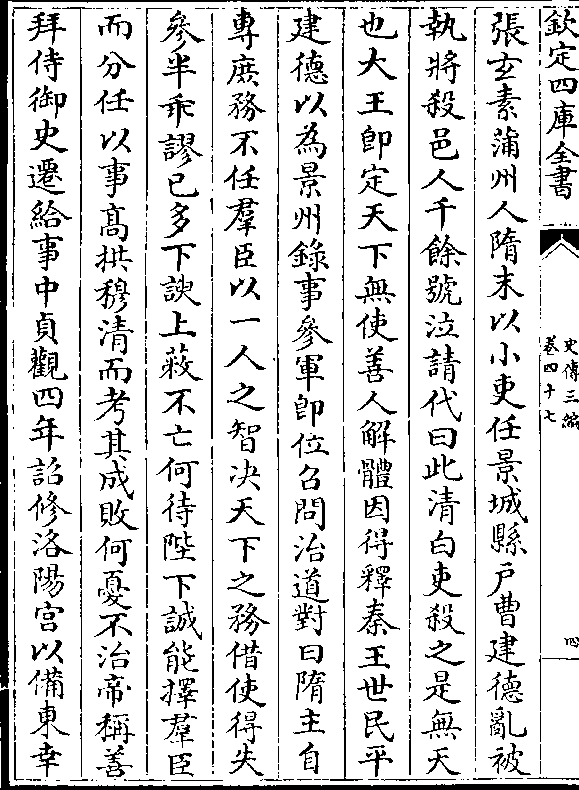 欽定四庫全書
史傳三編
卷四十七
四
張玄素蒲州人隋末以小吏任景城縣戸曹建德亂被
執將殺邑人千餘號泣請代曰此清白吏殺之是無天
也大王即定天下無使善人解體因得釋秦王世民平
建德以為景州錄事參軍即位召問治道對曰隋主自
專庶務不任羣臣以一人之智決天下之務借使得失
參半乖謬已多下諛上蔽不亡何待陛下誠能擇羣臣
而分任以事高拱穆清而考其成敗何憂不治帝稱善
拜侍御史遷給事中貞觀四年詔修洛陽宮以備東幸